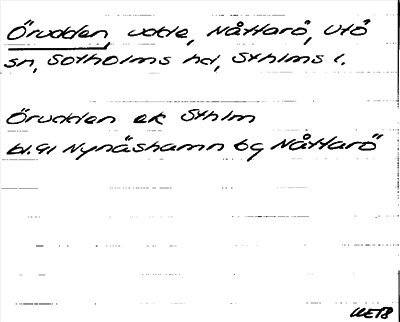 Örudden, udde, Nåttarö, Utö
sn, Sotholms hd, Sthlms l.
Örudden ek Sthlm
bl. 91 Nynäshamn 6g Nåttarö